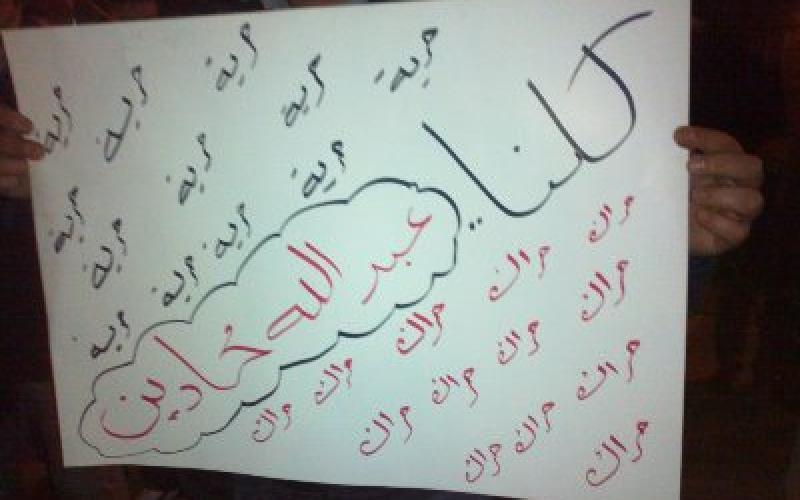 كلنا ..
عبد الله محادين
حرية حرية حرية حرية حرية
حرية حرية
حرية حرية حرية حرية
حرية
حراك حراك حراك
حراك حراك حراك
حراك حراك حراك
حراك حراك حراك حراك